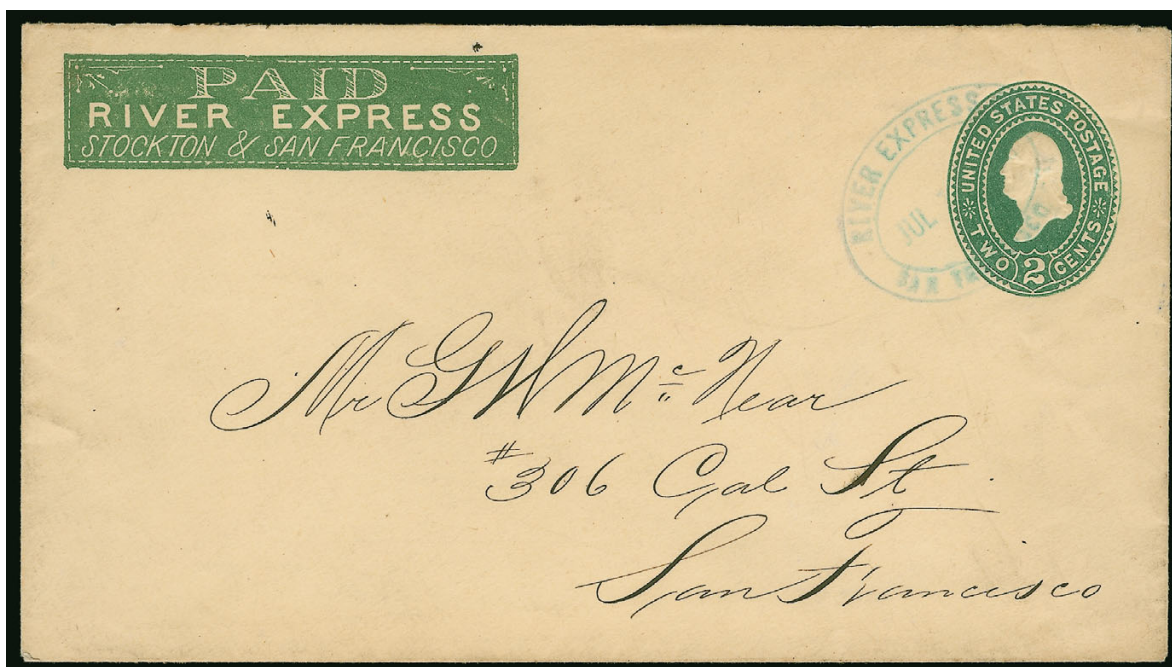 PAID
RIVER EXPRESS
STOCKTON & SAN FRANCISCO
RIVER EXPRESS
JUL
SAN
UNITED STATES POSTAGE
TWO 2 CENTS
Mr G W Mc Near
#306 Cal St
San Francisco